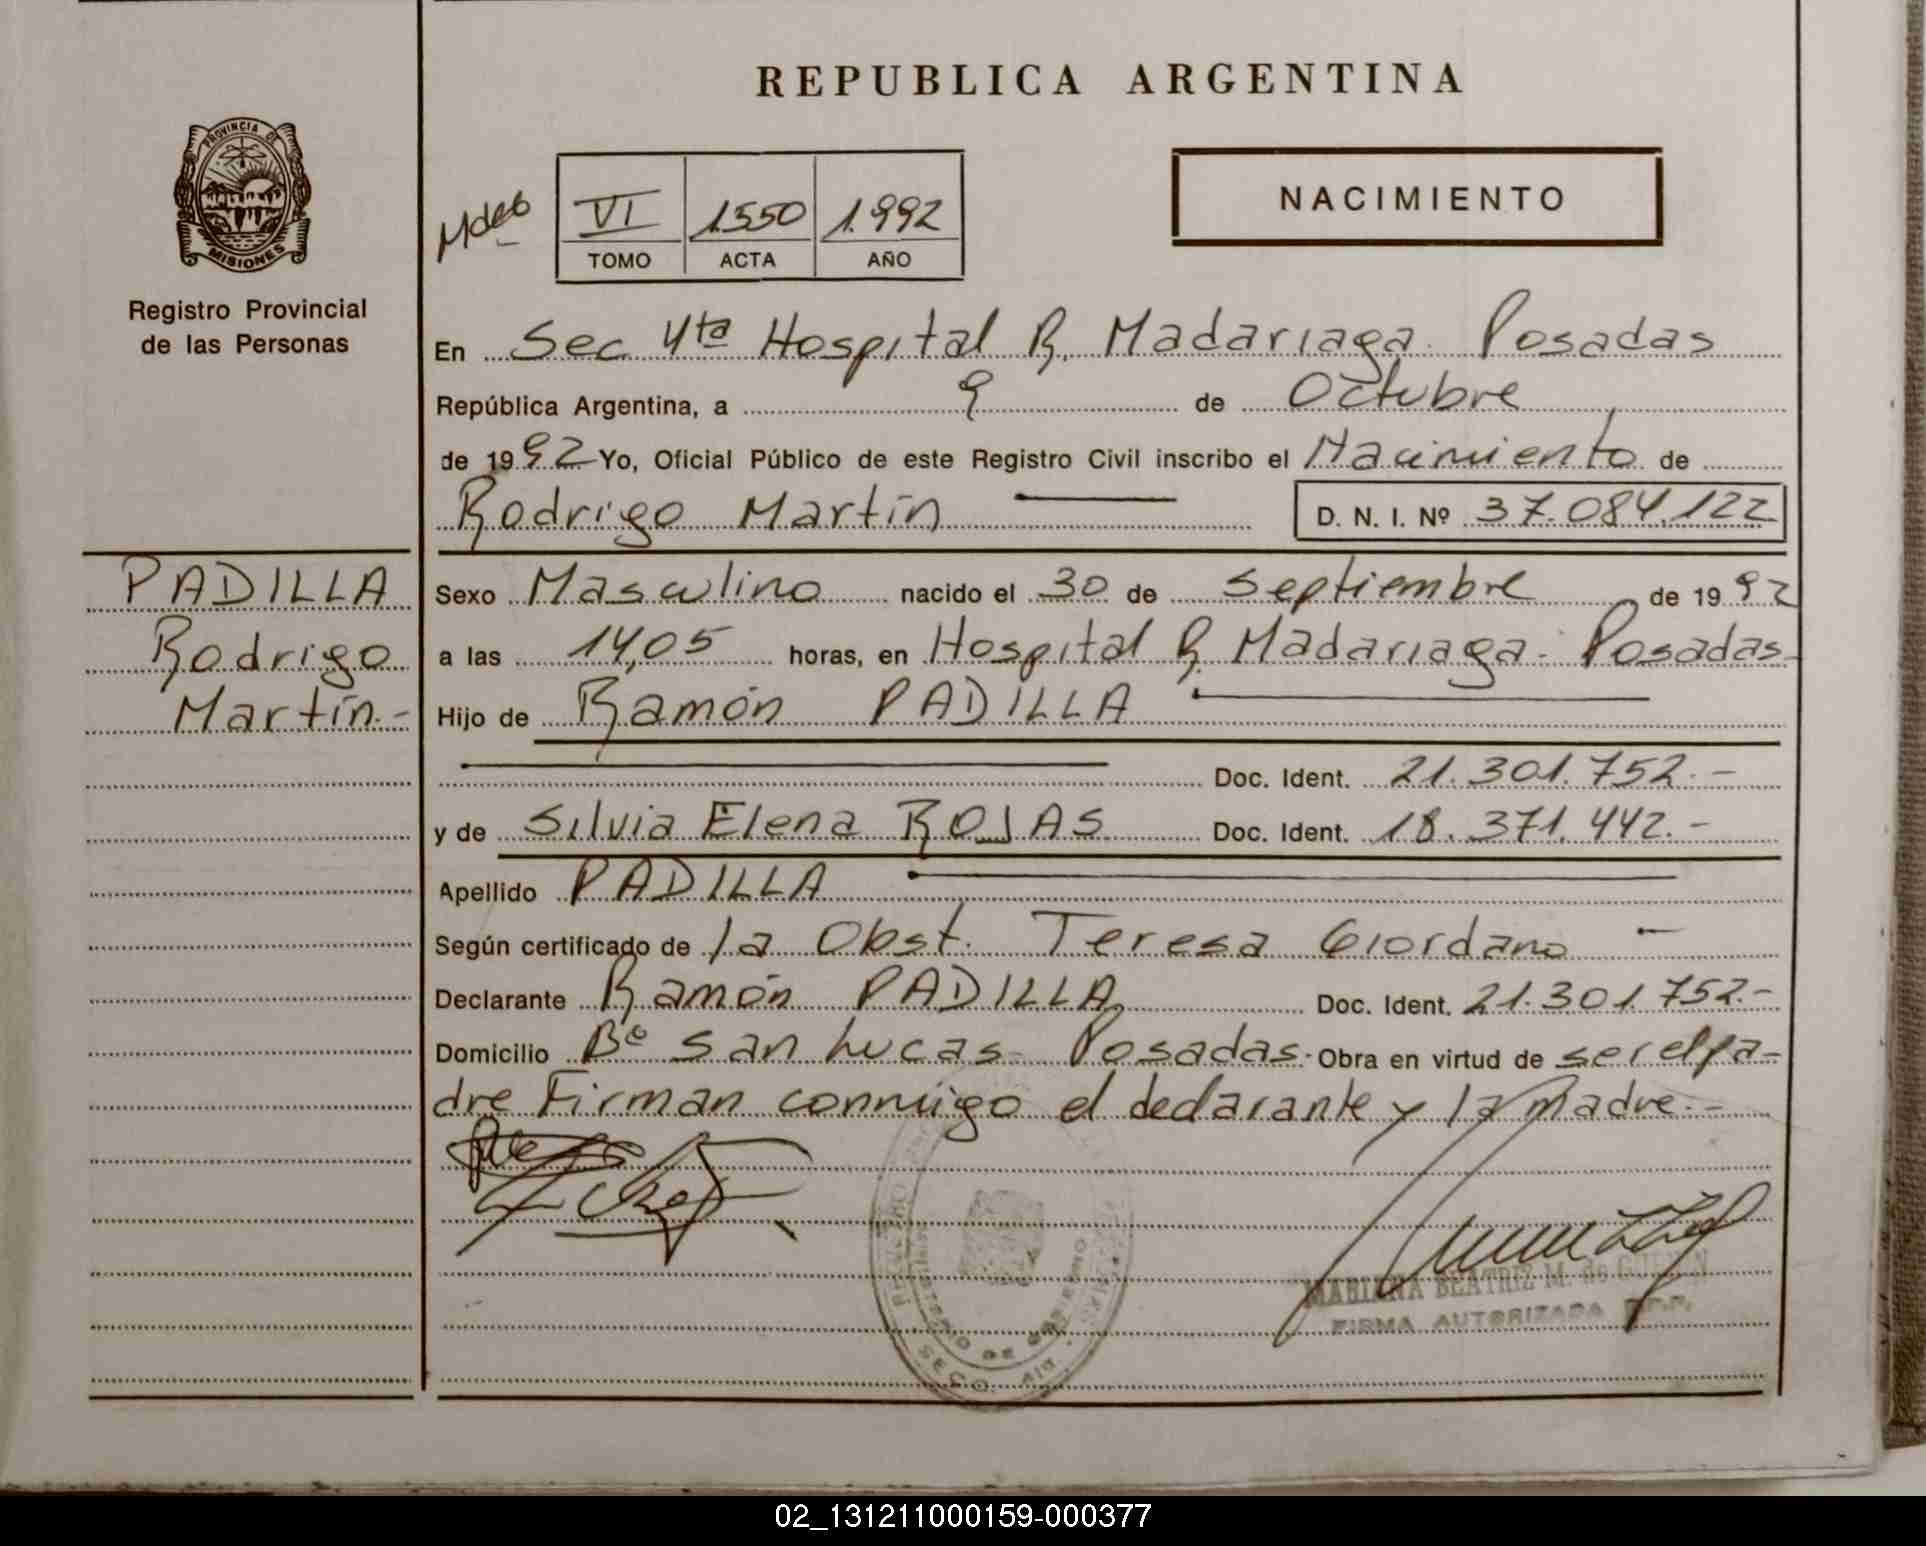 REPUBLICA ARGENTINA
PROVINCIA DE
MISIONES
Registro Provincial
de las Personas
VI 1550 1.992
TOMO ACTA AÑO
NACIMIENTO
En Sec 4ta Hospital R. Madariaga. Posadas
República Argentina, a 9 de Octubre
de 1992 Yo, Oficial Público de este Registro Civil inscribo el Nacimiento de
Rodrigo Martín
D. N. I. Nº 37.084.122
PADILLA
Rodrigo
Martín.-
Sexo Masculino nacido el 30 de Septiembre de 1992
a las 14,05 horas, en Hospital R. Madariaga - Posadas-
Hijo de Ramón PADILLA
Doc. Ident. 21.301.752.-
y de Silvia Elena ROJAS Doc. Ident. 18.371.442.-
Apellido PADILLA
Según certificado de la Obst. Teresa Giordano -
Declarante Ramón PADILLA Doc. Ident. 21.301.752.-
Domicilio Bº San Lucas - Posadas. Obra en virtud de ser el pa-
dre Firman conmigo el declarante y la madre.-
MARIANA BEATRIZ M. de
FIRMA AUTORIZADA
02_131211000159-000377